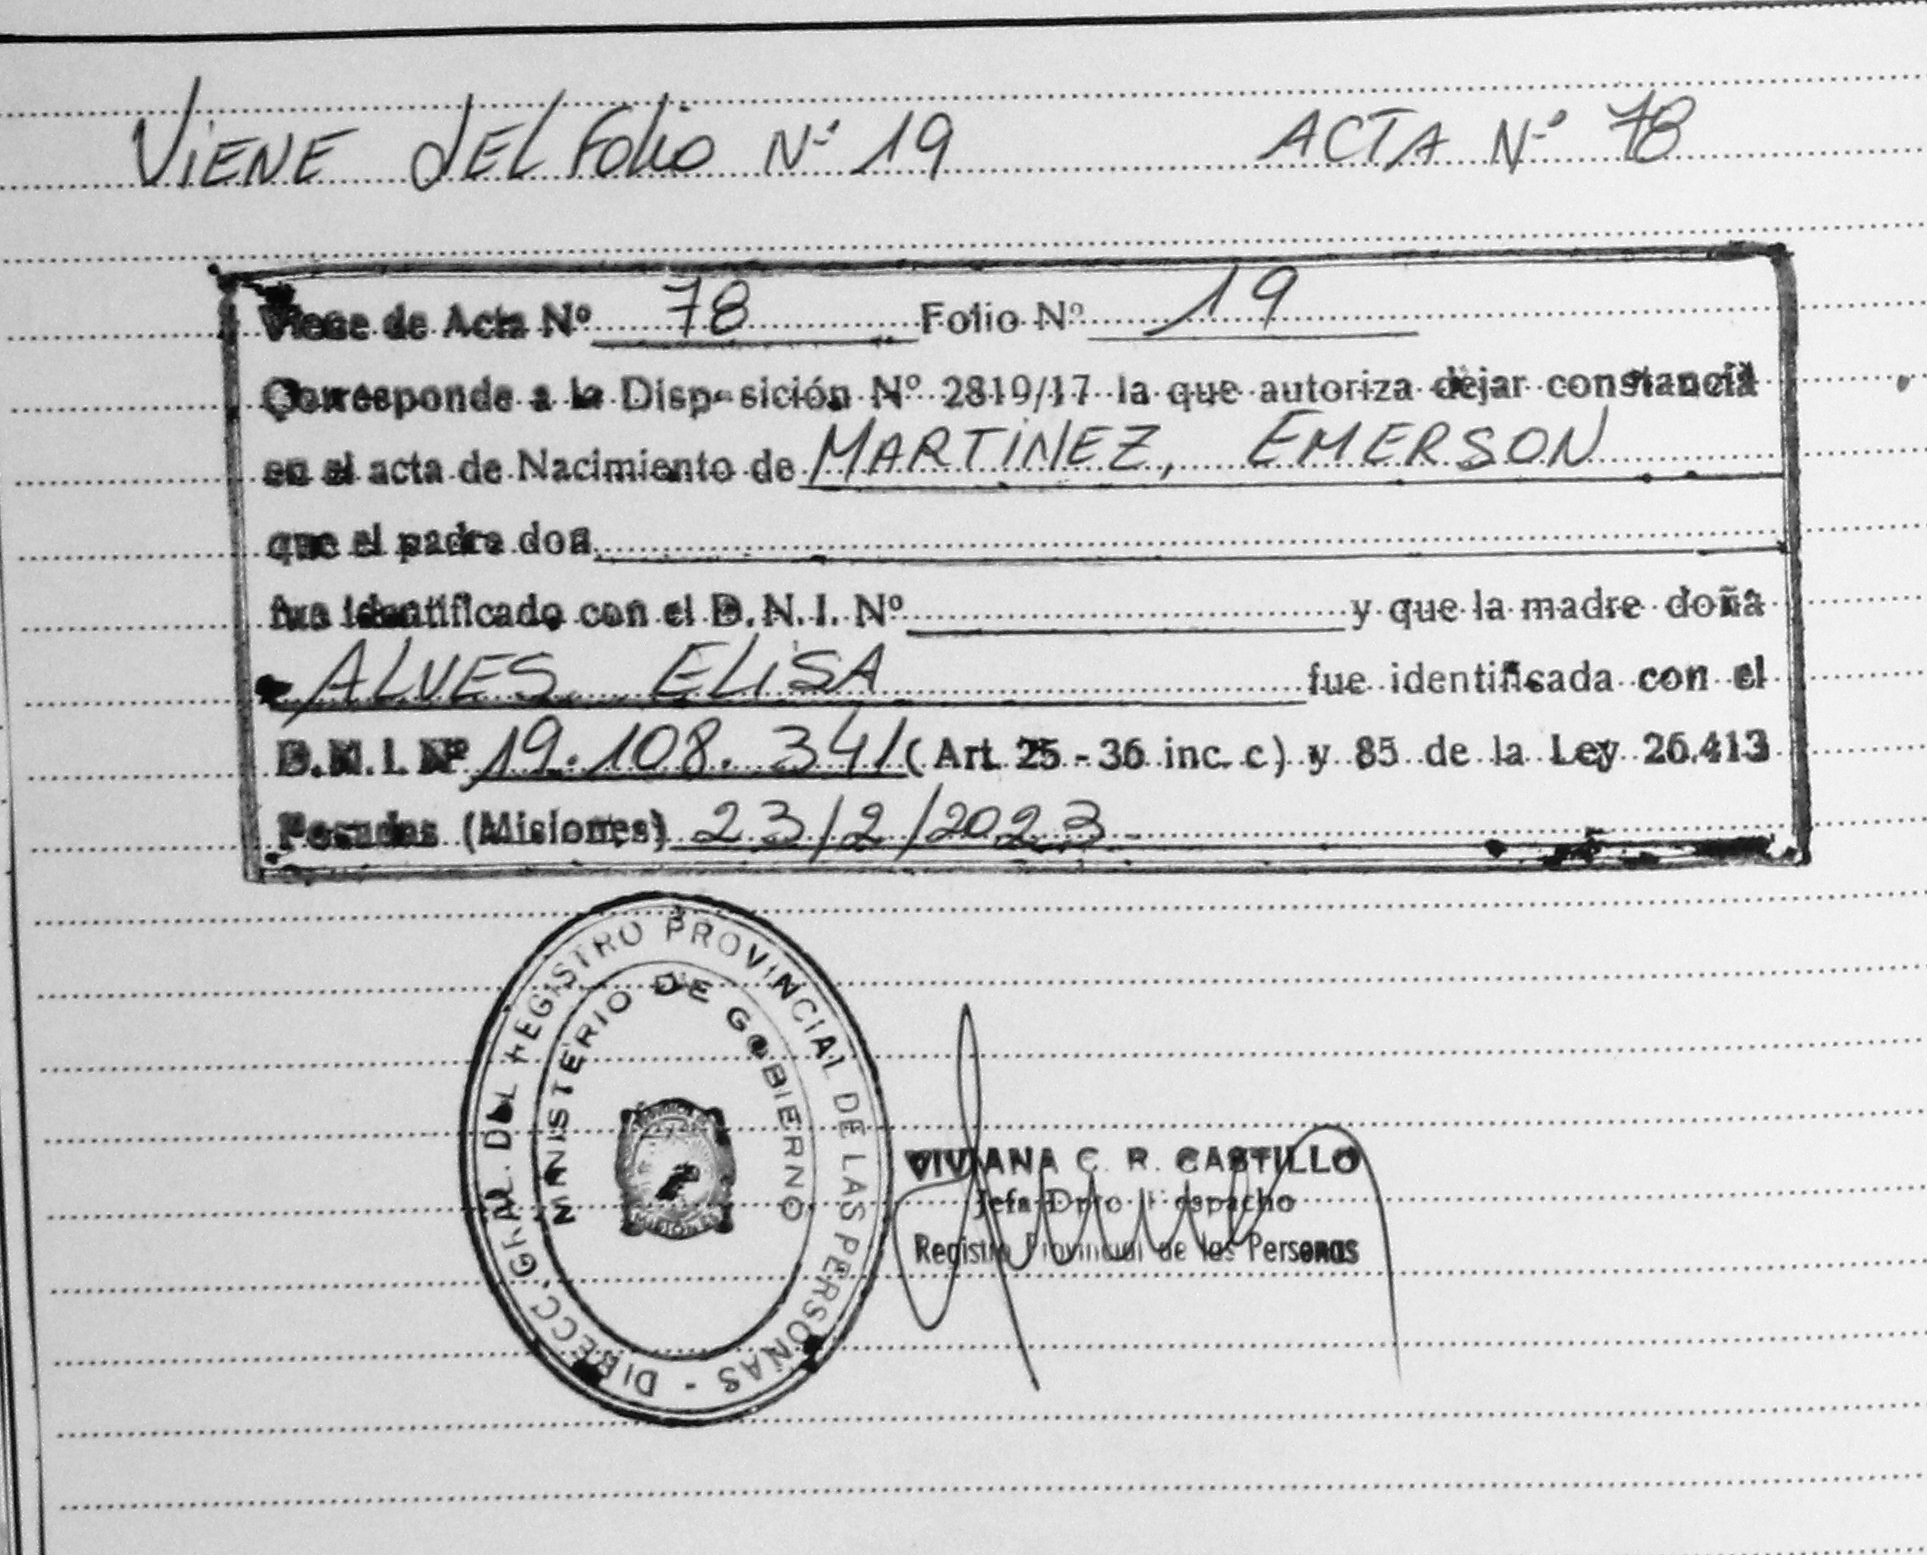 VIENE DEL Folio Nº 19 ACTA Nº 78
Viene de Acta Nº 78 Folio Nº 19
Corresponde a la Disposición Nº 2819/17 la que autoriza dejar constancia
en el acta de Nacimiento de MARTINEZ, EMERSON
que el padre don
fue identificado con el D.N.I. Nº y que la madre doña
ALVES ELISA fue identificada con el
D.N.I. Nº 19.108.341 (Art. 25 - 36 inc. c) y 85 de la Ley 26.413
Posadas (Misiones) 23/2/2023
DIRECC. GRAL. DEL REGISTRO PROVINCIAL DE LAS PERSONAS -
MINISTERIO DE GOBIERNO
MISIONES
VIVIANA C. R. CASTILLO
Jefa Dpto. Despacho
Registro Provincial de las Personas